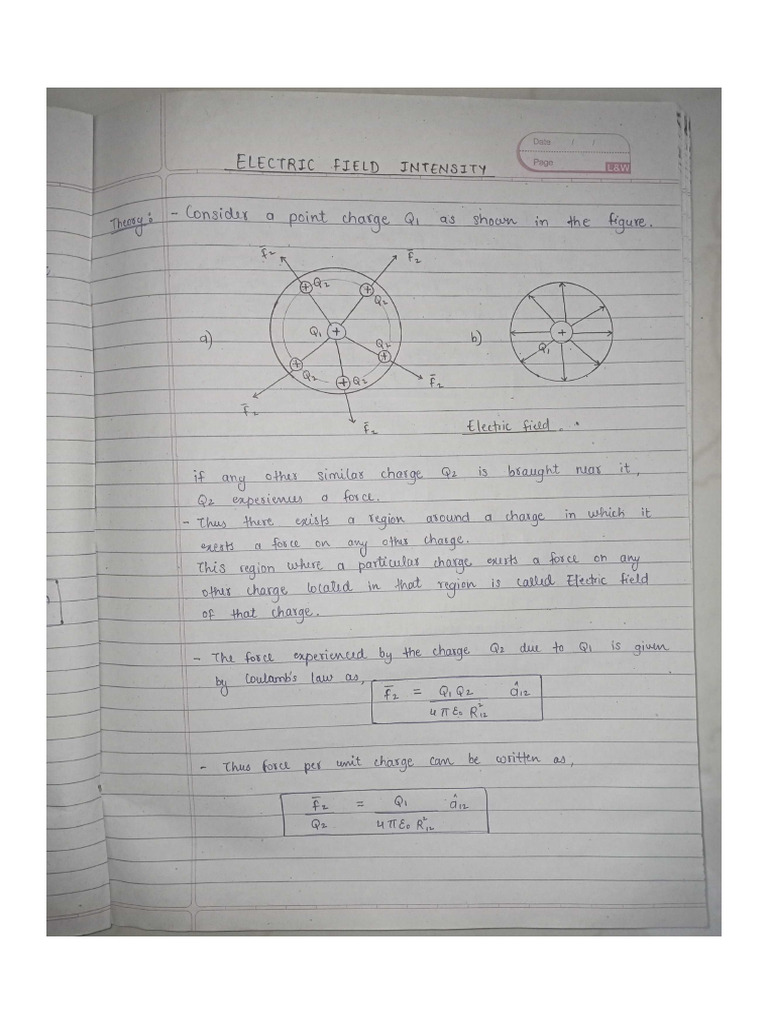 ELECTRIC FIELD INTENSITY
Date / /
Page
L&W
Theory: - Consider a point charge Q1 as shown in the figure.
a)
F̄2
F̄2
+ Q2
+ Q2
Q1 +
Q2 +
+ Q2
+ Q2
F̄2
F̄2
F̄2
b)
+
Q1
Electric field.
if any other similar charge Q2 is braught near it,
Q2 experiences a force.
- Thus there exists a region around a charge in which it
exerts a force on any other charge.
This region where a particular charge exerts a force on any
other charge located in that region is called Electric field
of that charge.
- The force experienced by the charge Q2 due to Q1 is given
by Coulamb's law as, F̄2 = Q1 Q2 / 4πε0 R12² â12
- Thus force per unit charge can be written as,
F̄2 / Q2 = Q1 / 4πε0 R12² â12